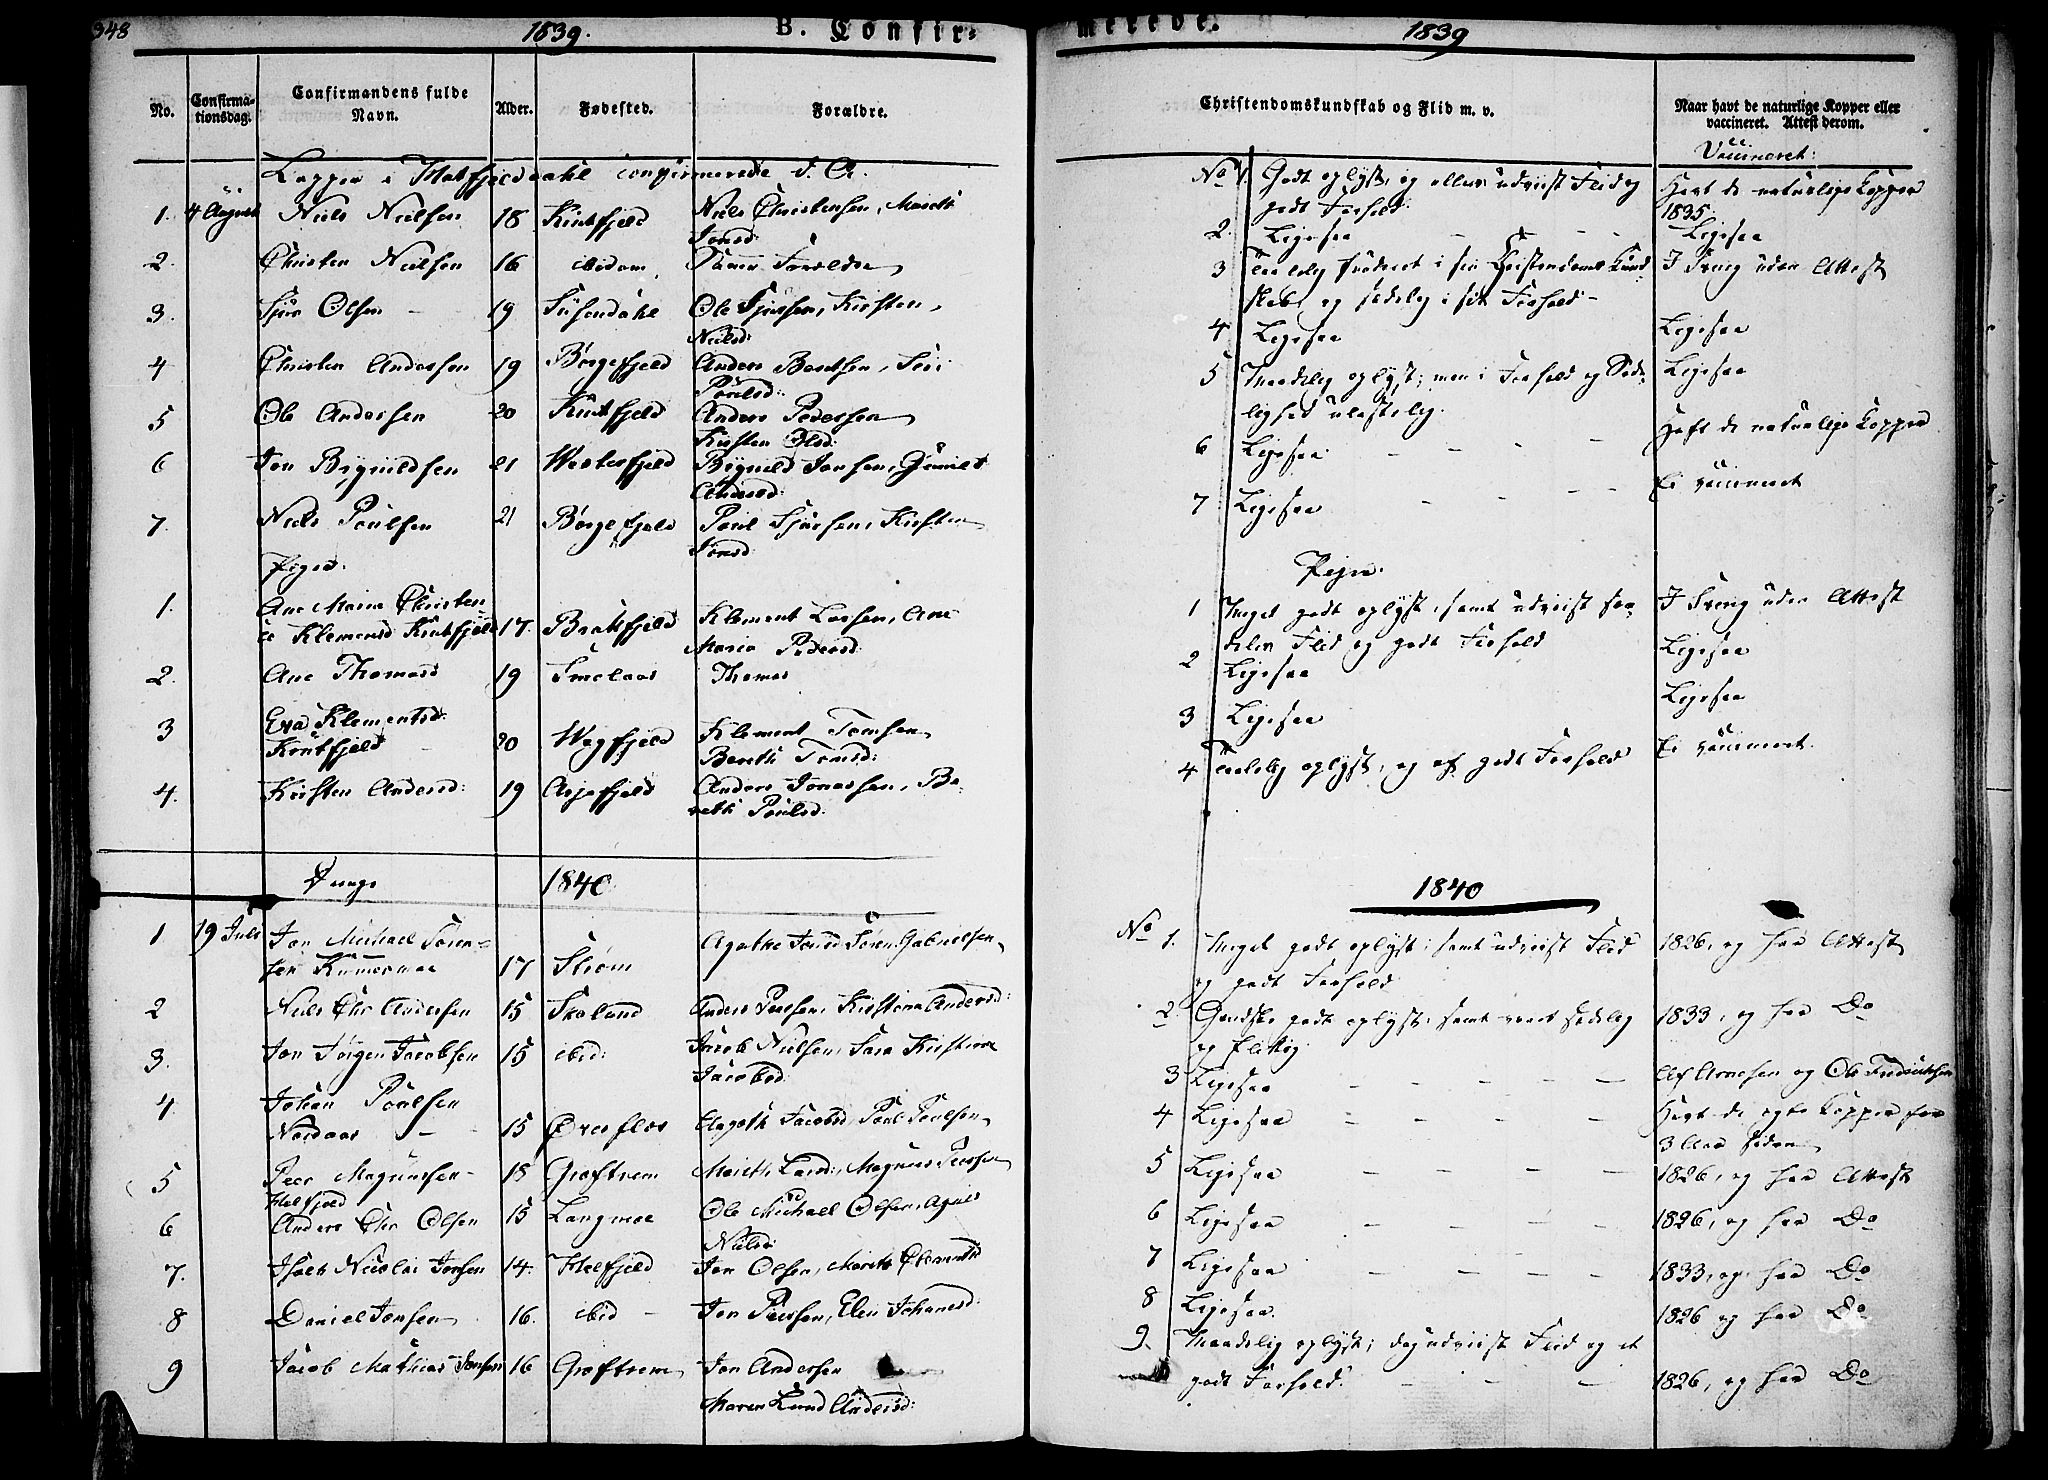 348 1839. B. Confir=
No. Confirma-tionsdag. Confirmandens fulde Navn. Alder. Fødested. Forældre.
Lapper i Hatfjelddahl confirmerede d. A.
1. 4 August Niels Nielsen 18 Krutfjeld Niels Christensen, Marith
Jonsd:
2. Christen Nielsen 16 ibidem Samme Forældre
3. Sjur Olsen 19 Susendahl Ole Sjursen, Kirsten
Nielsd:
4 Christen Andersen 19 Børgefjeld Anders Bentsen, Siri
Poulsd:
5 Ole Andersen 20 Krutfjeld Anders Pedersen
Kirsten Olsd:
6 Jon Brynildsen 21 Westerfjeld Brynild Jonsen, Gunild
Andersd:
7. Niels Poulsen 21 Børgefjeld Poul Sjursen, Kirsten
Jonsd:
Piger.
1. Ane Maria Christen-
ce Klemensd Krutfjeld 17. Brakfjeld Klement Larsen, Ane
Maria Pedersd:
2. Ane Thomasd 19 Smelaas Thomas
3 Eva Klementsd:
Krutfjeld 20 Wegfjeld Klement Tomsen
Berith Tomsd:
4. Kirsten Andersd: 19 Arjefjeld Anders Jonassen, Be-
reth Poulsd:
Drenge 1840
1 19 Juli Jon Michael Søren-
sen Kummermoe 17 Strøm Agathe Jonsd Søren Gabrielsen
2 Niels Chr Andersen 15 Skaland Anders Peersen, Kirstina Andersd:
3. Jon Jørgen Jacobsen 15 ibid: Jacob Nielsen, Sara Kirstina
Jacobsd
4 Johan Poulsen
Nordaas 15 Øverflos Aagoth Jacobsd Poul Poulsen
5 Peer Magnussen
Helfjeld 15 Groftrem Marith Larsd:, Magnus Peersen
6 Anders Chr Olsen 15 Langmoe Ole Michael Olsen, Agnis
Nielsd:
7. Isach Nicolai Jonsen 14. Helfjeld Jon Olsen, Marith Clementsd
8 Daniel Jonsen 16. ibid Jon Peersen, Elen Johansd:
9 Jacob Mathias Jonsen 16 Groftrem Jon Andersen
Maren Lund Andersd:
merede. 1839
Christendomskundskab og Flid m. v. Naar havt de naturlige Kopper eller vaccineret. Attest derom.
Vaccineret:
No 1. Godt oplyst, og ellers udviist Flid og
godt Forhold: Havt de naturlige Kopper
1835
2. Ligesaa Ligesaa
3 Taalelig funderet i sin Christendoms Kund-
skab, og sædelig i sit Forhold I Sverig uden Attest
4 Ligesaa Ligesaa
5 Maadelig oplyst; men i Forhold og Sæde-
lighed ulastelig. Ligesaa
6 Ligesaa Haft de naturlige Kopper
7 Ligesaa Ei vaccineret
Piger.
1 Meget godt oplyst, samt udviist saa-
delen Flid og godt Forhold I Sverig uden Attest
2 Ligesaa Ligesaa
3 Ligesaa Ligesaa
4 Taalelig oplyst, og af godt Forhold Ei vaccineret.
1840
No 1. Meget godt oplyst, samt udviist Flid
og godt Forhold 1826, og har Attest
2 Gandske godt oplyst, samt været sædelig
og flittig 1833, og har Do
3 Ligesaa Af Arnesen og Ole Fredriksen
4 Ligesaa Havt de egte Kopper for
3 Aar siden
5 Ligesaa 1826, og har Attest
6 Ligesaa 1826, og har Do
7 Ligesaa 1833, og har Do
8 Ligesaa. 1826 og har Do
9. Maadelig oplyst; dog udviist Flid og et
godt Forhold. 1826, og har Do